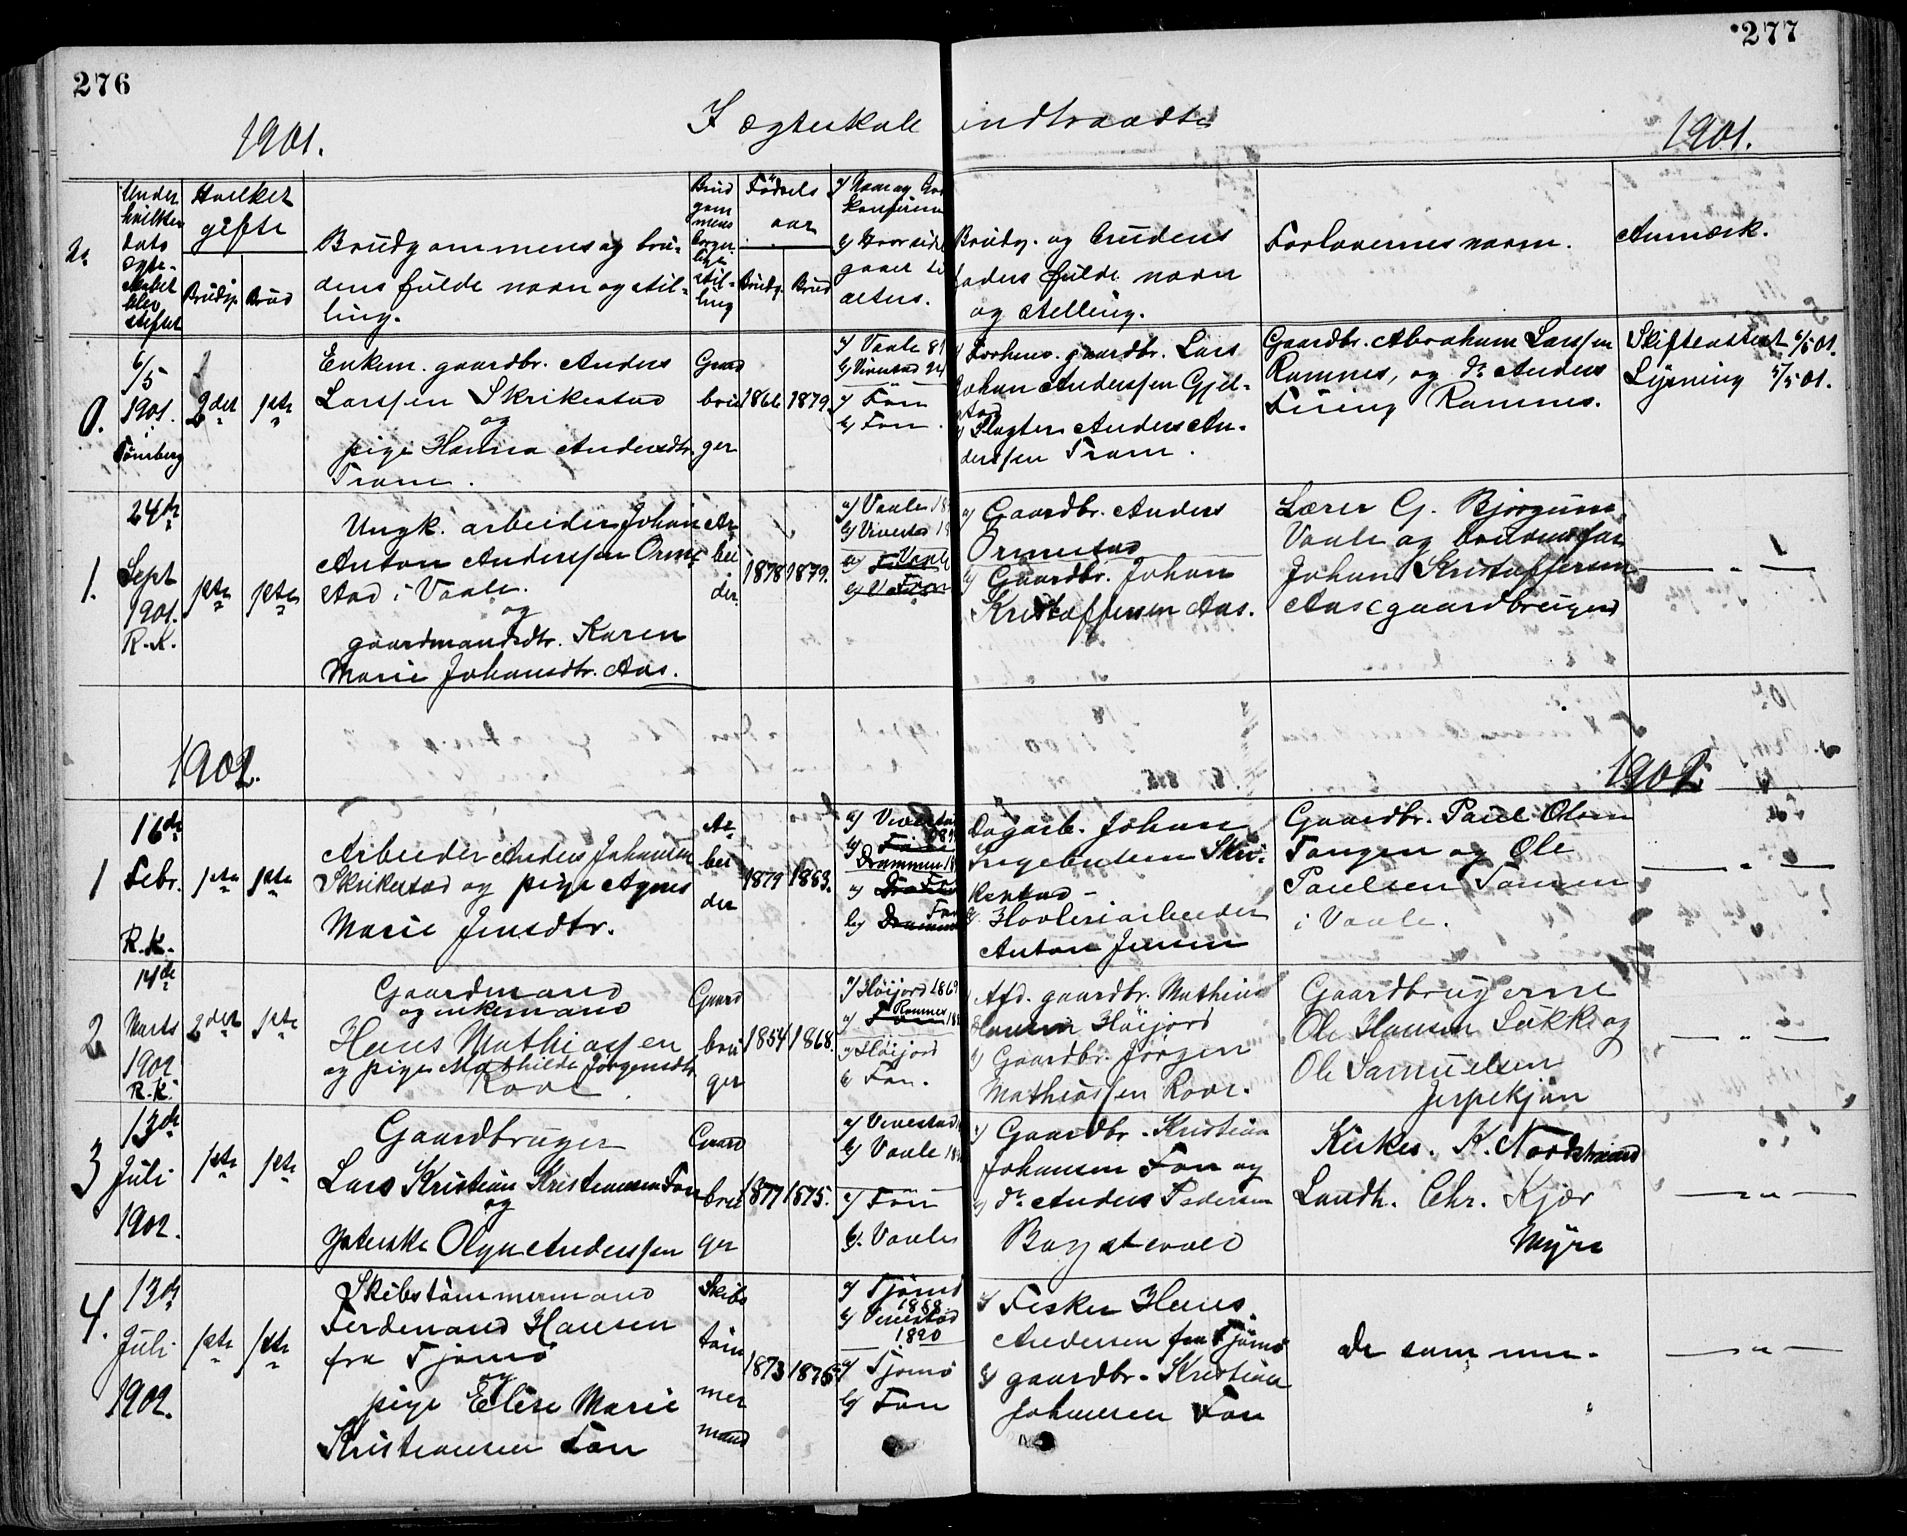 276
277
1901.
I ægteskab indtraadte
1901.
Nr
Under hvilken dato ægteskabet blev stiftet
Hvilket gifte
Brudg. Brud
Brudgommens og brudens fulde navn og stilling.
Brudgommens borgerlige stilling
Fødsels aar
Brudg. Brud
Brudg. og brudens faders fulde navn og stilling.
Forlovernes navn.
Anmærk.
0.
6/5
1901.
Tønsberg
2det
1ste
Enkem. gaardbr. Anders
Larssen Skrikestad
og
pige Hanna Andersdtr.
Fram.
Gaard
bru
ger
1866
1879
a) Vaale
b) Vivestad
a) Fon
b) Fon.
Forhenv. gaardbr. Lars
Johan Anderssen Gjel-
stad
Slagter Anders An-
derssen Fram.
Gaardbr. Abraham Larssen
Ramnes, og do Anders
Firing Ramnes.
Skifteattest 6/5 01.
Lysning 5/5 01.
1.
24de
Sept
1901.
R.K.
1ste
1ste
Ungk. arbeider Johan
Anton Anderssen Orme-
stad i Vaale.
og
gaardmandsdtr. Karen
Marie Johansdtr. Aas.
Ar
bei
der.
1878
1879.
a) Vaale
b) Vivestad
a) Vaale
b) Fon
a) Gaardbr. Anders
Ormestad
b) Gaardbr. Johan
Kristoffersen Aas.
Lærer G. Bjørgum,
Vaale og
Johan Kristoffersen
Aas (gaardbruger)
— " —
1902.
1902.
1
16de
Febr.
R.K.
1ste
1ste
Arbeider Anders Johansen
Skrikestad og pige Agnes
Marie Jensdtr.
Ar
bei
der
1879
1883.
a) Vivestad
b) Drammen
a) Fon
b) Fon
Dagarb. Johan
Ingebretsen Skri-
kestad -
b) Høvleriarbeider
Anton Jensen
Gaardbr. Paul Olsen
Tangen og Ole
Paulsen Tangen
i Vaale.
— " —
2
14de
Marts
1902
R.K.
2det
1ste
Gaardmand
og enkemand
Hans Mathiassen
og pige Mathilde Jørgensdtr.
Rove
Gaard
bru
ger
1854
1868.
a) Høijord 1869
b) Ramnes
a) Høijord
b. Fon.
Afd. gaardbr. Mathias
Hansen Høijord
b) Gaardbr. Jørgen
Mathiassen Rove.
Gaardbrugerne
Ole Hansen Løkke og
Ole Samuelsen
Jerpekjøn
— " —
3
13de
Juli
1902.
1ste
1ste
Gaardbruger
Lars Kristian Kristiansen Fon
og
Olga Anderssen
Gaard
bru
ger
1877
1875.
a) Vivestad
b) Vaale
a) Fon
b. Vaale
a) Gaardbr. Kristian
Johansen Fon og
b) do Anders Pedersen
Kirkes. K. Nordstrand
Landh. Chr. Kjær
Myre
— " —
4.
13de
Juli
1902.
1ste
1ste
Skibstømmermand
Ferdinand Hansen
fra Tjømø
og
pige Elise Marie
Kristiansen Fon
Skibs
tøm
mer
mand
1873
1875
a) Tjømø
1888
b) Vivestad
1890
a) Tjømø
b) Fon
a) Fisker Hans
Andersen fra Tjømø
b) gaardbr. Kristian
Johansen Fon
de samme.
— " —